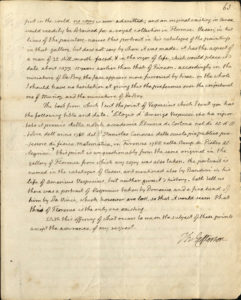 63
put in the world. no copy is now admitted, and an original existing in those
would readily be obtained for a royal collection in Florence. Vasari, in his
lives of the painters, names this portrait in his catalogue of the paintings
in that gallery, but does not say by whom it was made. it has the aspect of
a man of
about 1477. 15 years earlier than that of
miniature of De Bry the face appears more furrowed by time. on the whole
I should have no hesitation at giving this the preference over the original
of Muñoz, and the miniature of De Bry.
The book from which I cut the print of Vespucius which I sent you has
the following title and date. Elogio d'Amerigo Vespucci che ha ripor-
tato il premio dalla nobile accademia Etrusca di Cortona nel dì 15. d'Ot-
tobre dell' anno 1788 del P. Stanislao Canovai delle scuole pie publico pro-
fessore di fisica-matematica. in Firenze 1788 nella Stamp. di Pietro Al-
legrini. this print is unquestionably from the same original in the
gallery of Florence from which my copy was also taken. the portrait is
named in the catalogue of Vasari, and mentioned also by Bandini in his
life of Americus Vespucius; but neither gives it's history. both tell us
there was a portrait of Vespucius taken by Domenico and a fine head of
him by Da Vinci, which however are lost, so that it would seem that
this of Florence is the only one existing.
With this offering of what occurs to me on the subject of these prints
accept the assurance of my respect.
Th: Jefferson